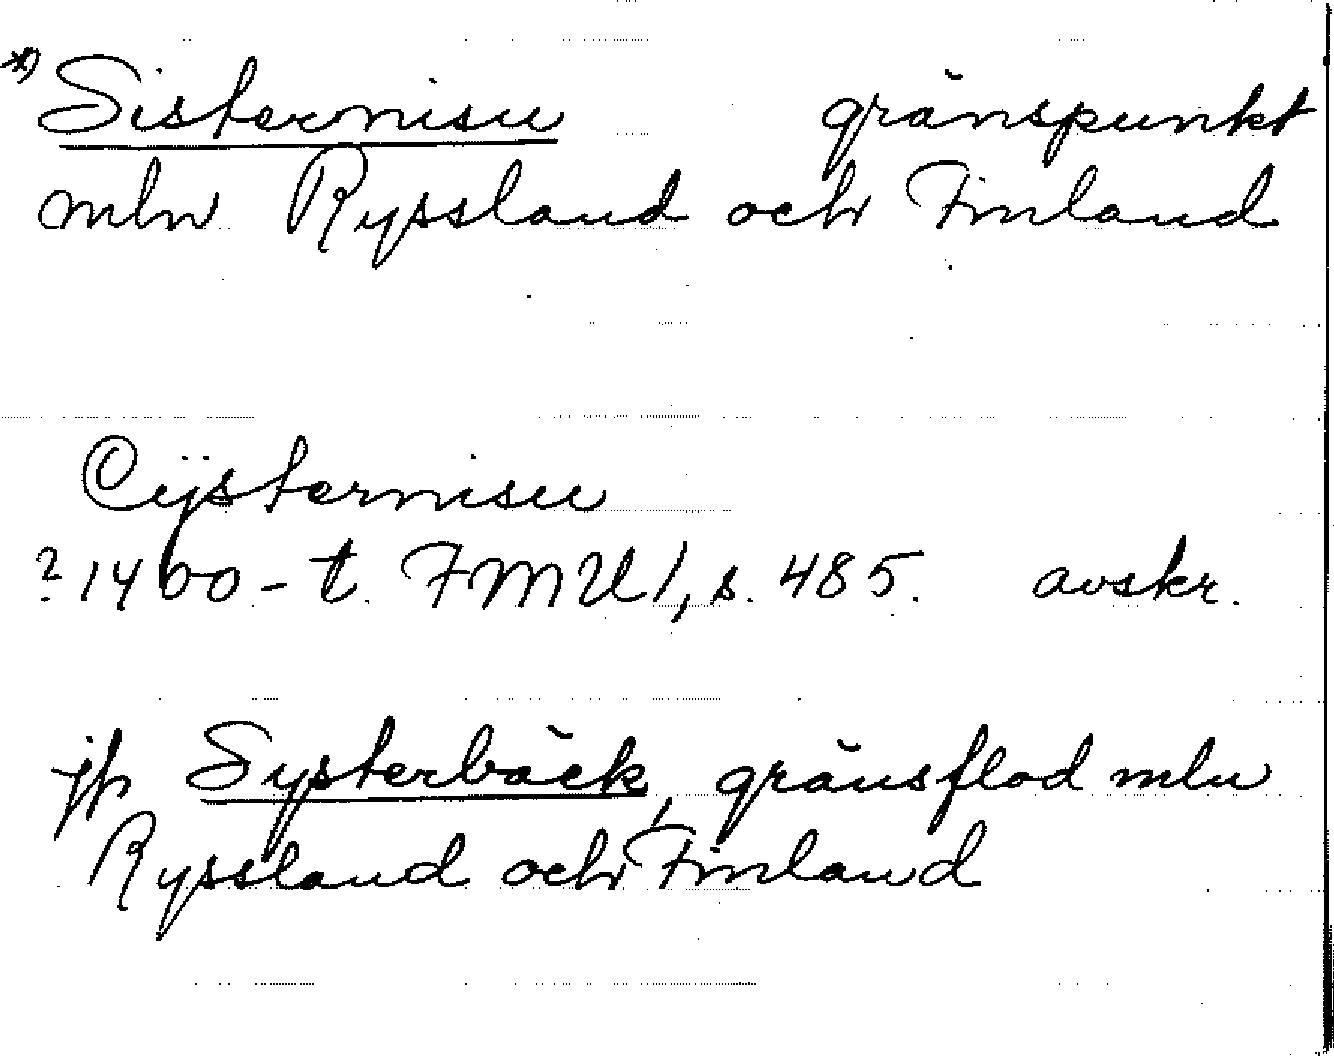 *) Sisternisu gränspunkt
mln Ryssland och Finland
Cÿsternisu
? 1400-t. FMU 1, s. 485. avskr.
jfr Systerbäck, gränsflod mln
Ryssland och Finland